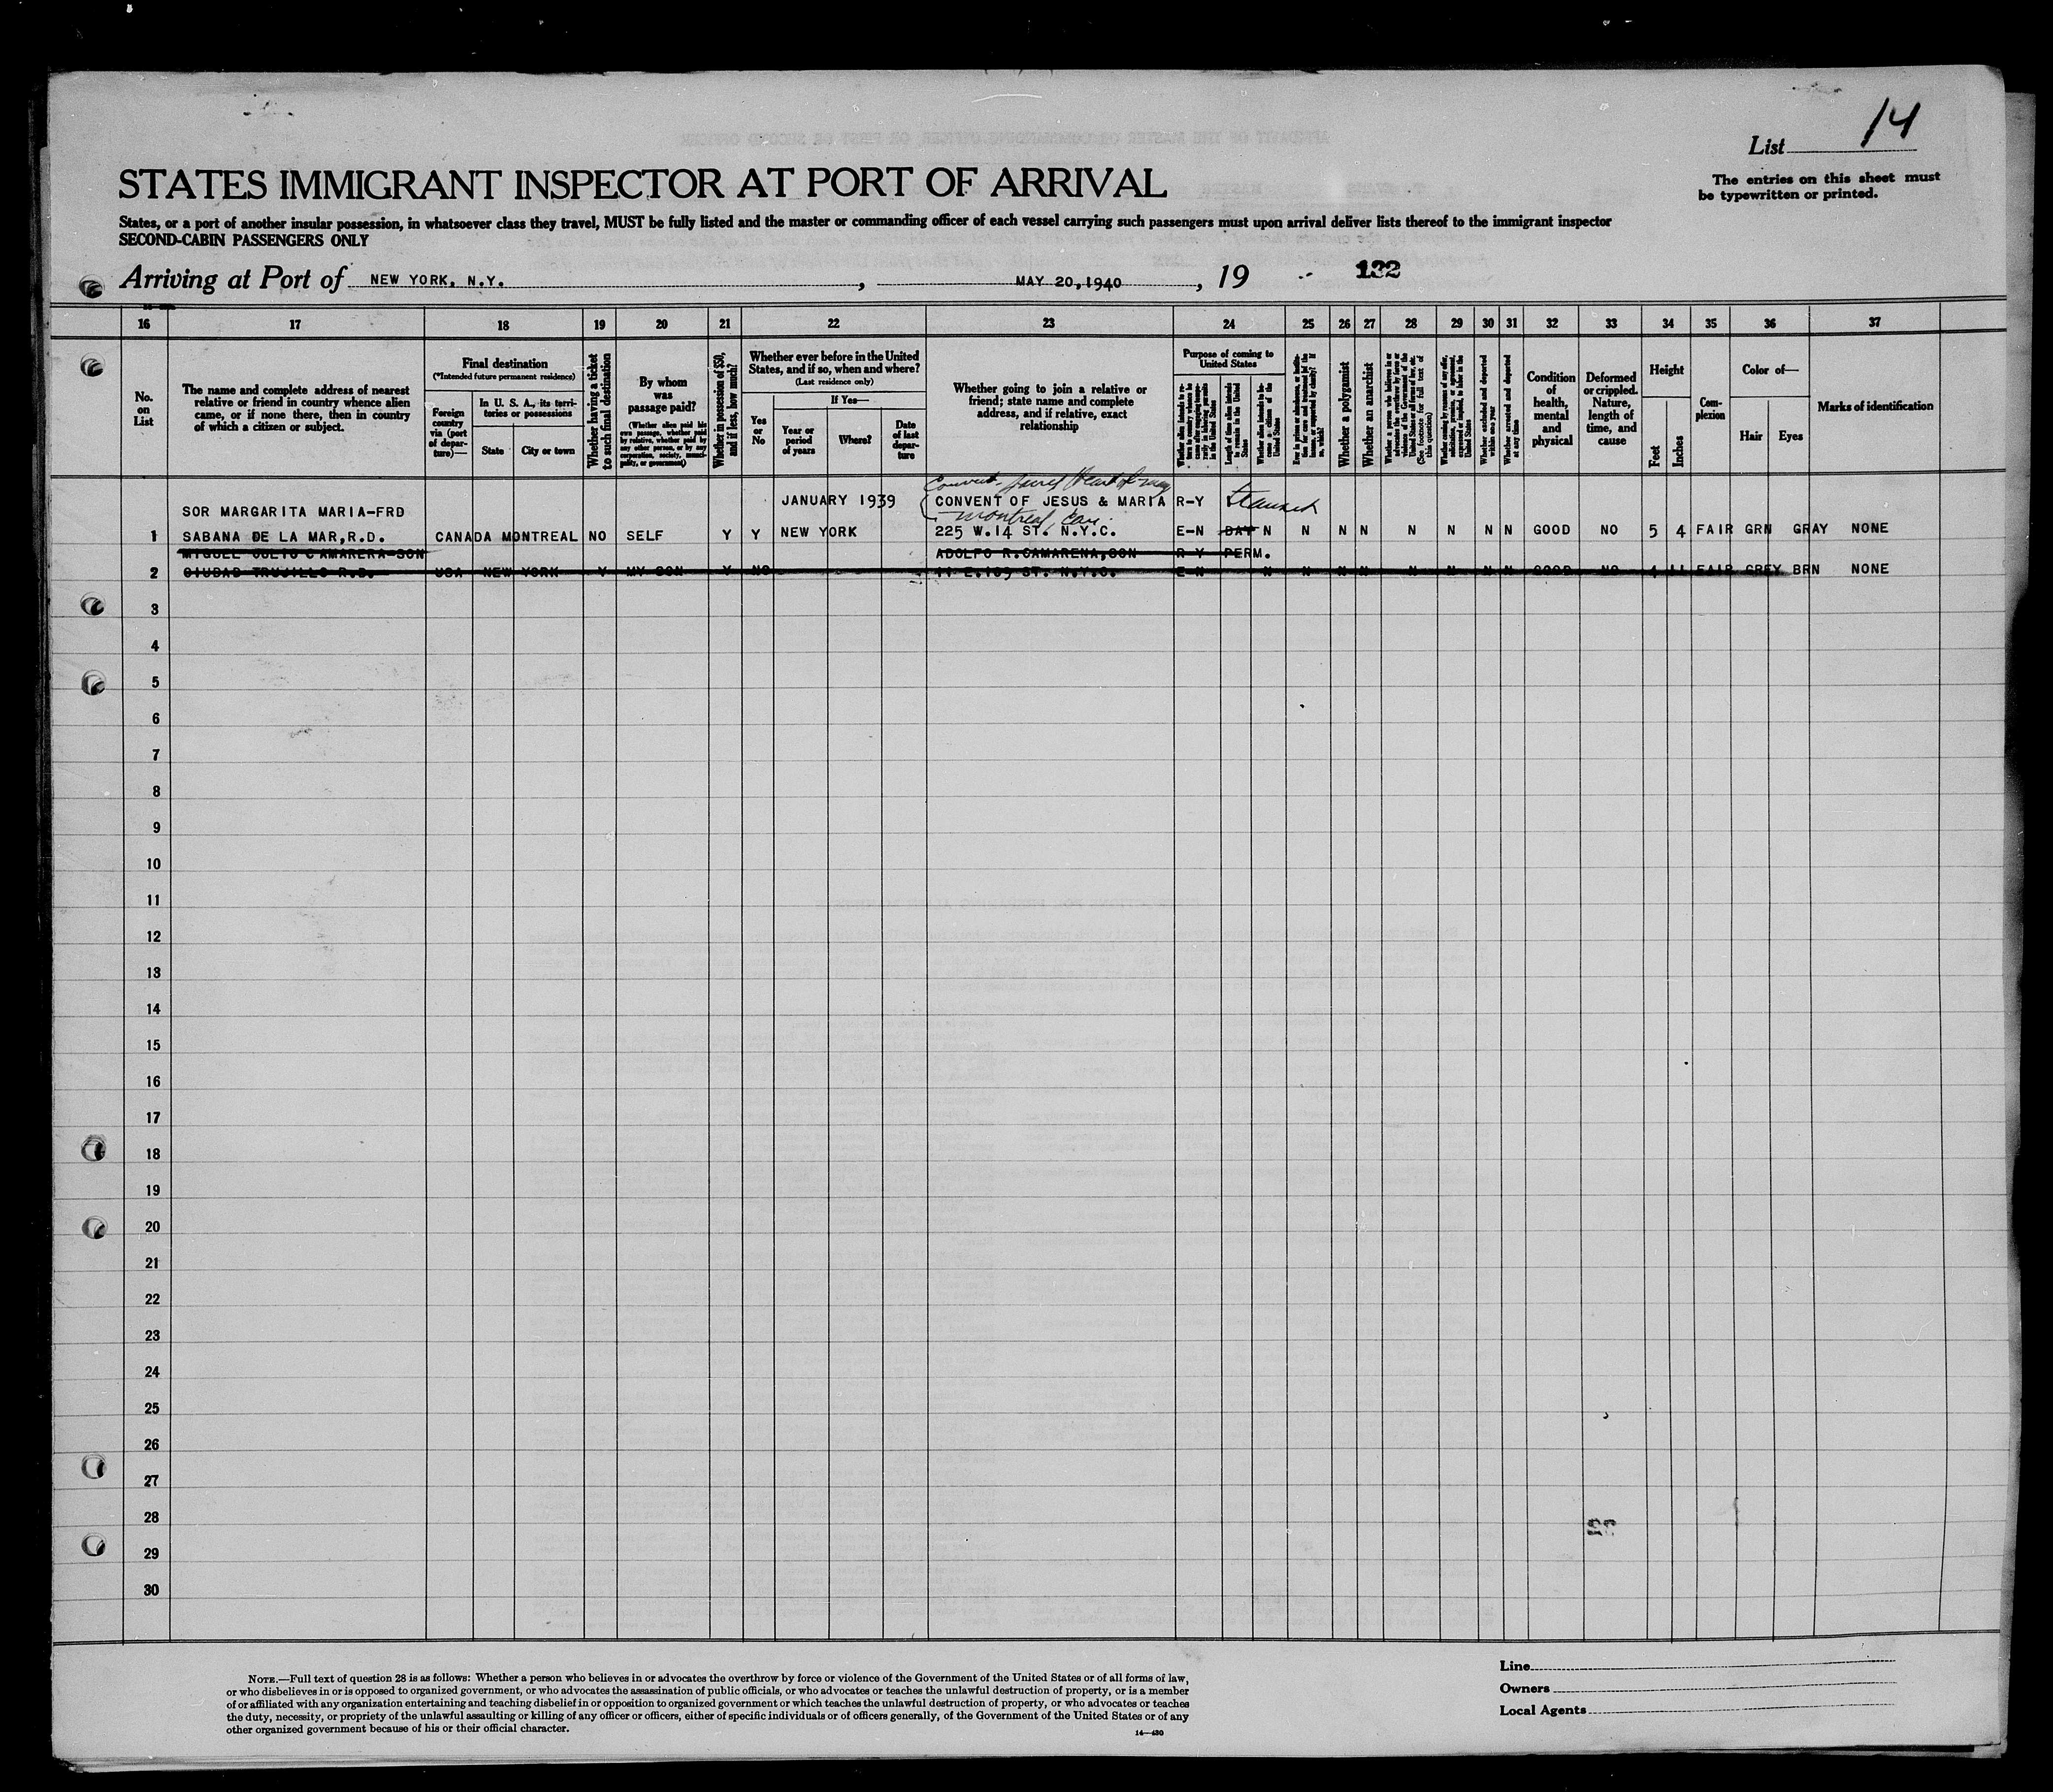 List 14
STATES IMMIGRANT INSPECTOR AT PORT OF ARRIVAL
The entries on this sheet must
be typewritten or printed.
States, or a port of another insular possession, in whatsoever class they travel, MUST be fully listed and the master or commanding officer of each vessel carrying such passengers must upon arrival deliver lists thereof to the immigrant inspector
SECOND-CABIN PASSENGERS ONLY
Arriving at Port of NEW YORK, N.Y. , MAY 20,1940 , 19 132
16 17 18 19 20 21 22 23 24 25 26 27 28 29 30 31 32 33 34 35 36 37
No. on List
The name and complete address of nearest relative or friend in country whence alien came, or if none there, then in country of which a citizen or subject.
Final destination
(*Intended future permanent residence)
Foreign country via (port of departure)—
In U. S. A., its territories or possessions
State
City or town
Whether having a ticket to such final destination
By whom was passage paid?
(Whether alien paid his own passage, whether paid by relative, whether paid by any other person, or by any corporation, society, municipality, or government)
Whether in possession of $50, and if less, how much?
Whether ever before in the United States, and if so, when and where?
(Last residence only)
Yes or No
If Yes—
Year or period of years
Where?
Date of last departure
Whether going to join a relative or friend; state name and complete address, and if relative, exact relationship
Purpose of coming to United States
Length of time alien intends to remain in the United States
Whether alien intends to become a citizen of the United States
Whether a polygamist
Whether an anarchist
Whether excluded and deported within one year
Whether arrested and deported at any time
Condition of health, mental and physical
Deformed or crippled. Nature, length of time, and cause
Height
Feet
Inches
Complexion
Color of—
Hair
Eyes
Marks of identification
Convent
SOR MARGARITA MARIA-FRD JANUARY 1939 CONVENT OF JESUS & MARIA R-Y
Montreal, Can.
1 SABANA DE LA MAR,R.D. CANADA MONTREAL NO SELF Y Y NEW YORK 225 W.14 ST. N.Y.C. E-N DAY N N N N N N N N GOOD NO 5 4 FAIR GRN GRAY NONE
MIGUEL JULIO CAMARERA-SON ADOLFO R.CAMARENA,SON R-Y PERM.
2 CIUDAD TRUJILLO R.D. USA NEW YORK Y MY SON Y NO E.109 ST. N.Y.C. E-N N N N N N N N N GOOD NO 4 11 FAIR GREY BRN NONE
3
4
5
6
7
8
9
10
11
12
13
14
15
16
17
18
19
20
21
22
23
24
25
26
27
28
29
30
NOTE.—Full text of question 28 is as follows: Whether a person who believes in or advocates the overthrow by force or violence of the Government of the United States or of all forms of law,
or who disbelieves in or is opposed to organized government, or who advocates the assassination of public officials, or who advocates or teaches the unlawful destruction of property, or is a member
of or affiliated with any organization entertaining and teaching disbelief in or opposition to organized government or which teaches the unlawful destruction of property, or who advocates or teaches
the duty, necessity, or propriety of the unlawful assaulting or killing of any officer or officers, either of specific individuals or of officers generally, of the Government of the United States or of any
other organized government because of his or their official character.
14—430
Line
Owners
Local Agents